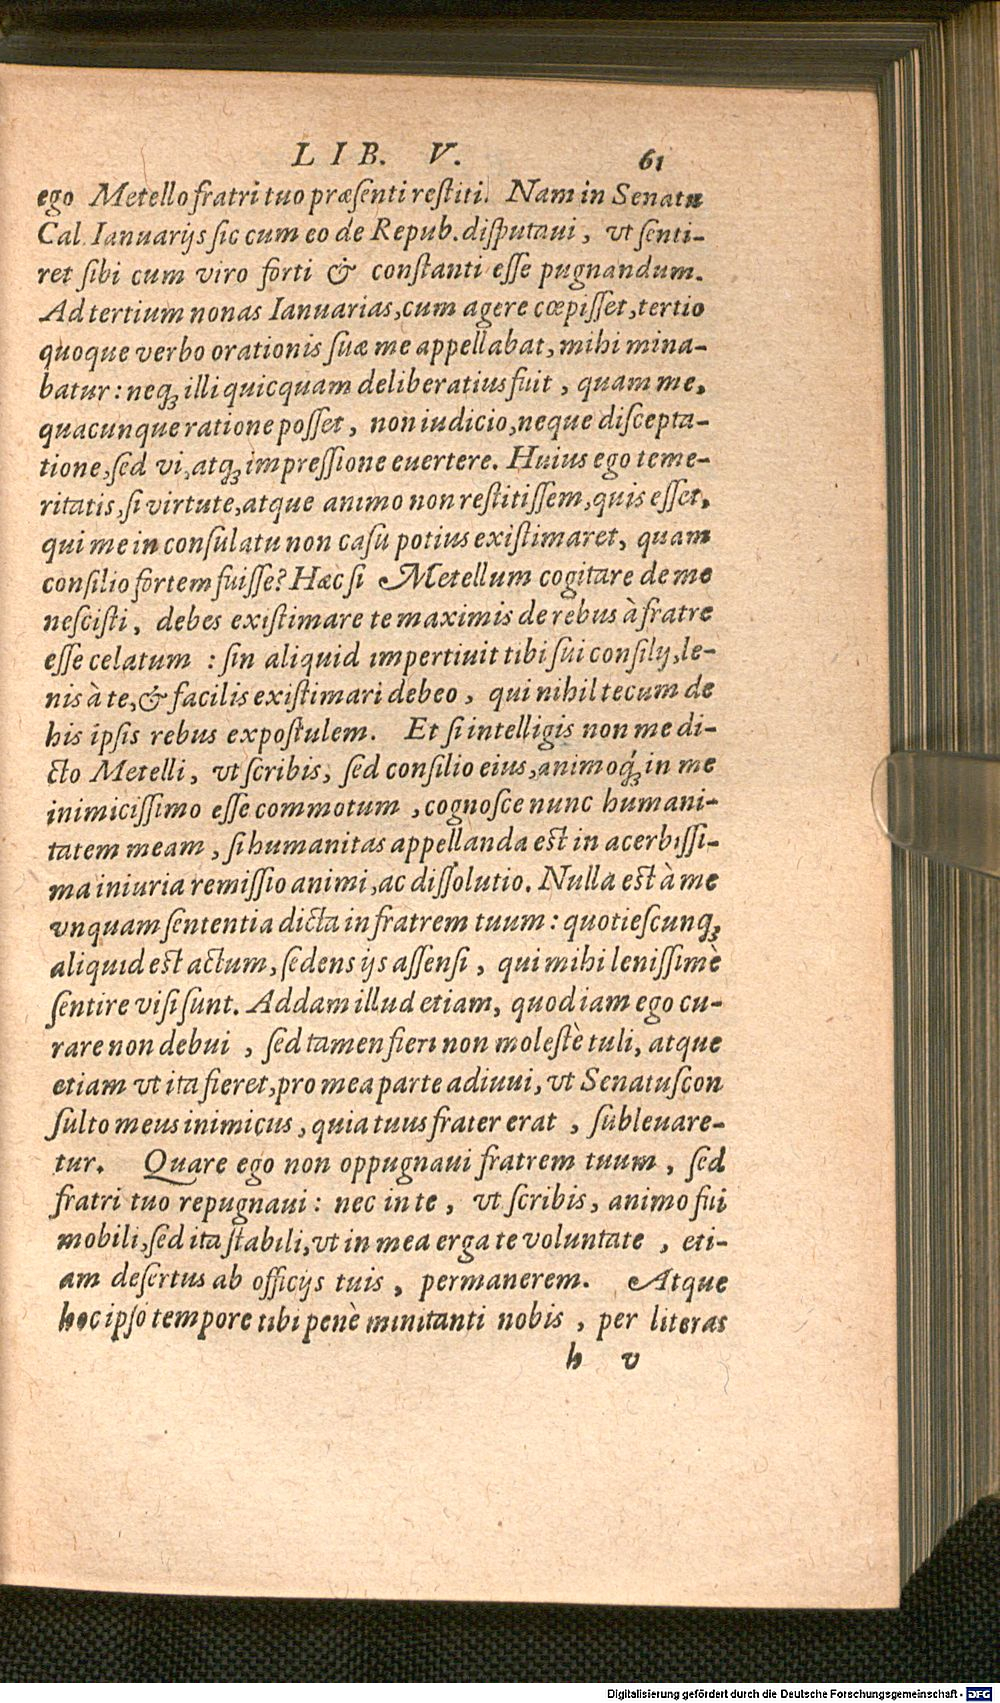 LIB. V. 61
ego Metello fratri tuo præsenti restiti. Nam in Senatu
Cal. Ianuarijs sic cum eo de Repub. disputaui, vt senti-
ret sibi cum viro forti & constanti esse pugnandum.
Ad tertium nonas Ianuarias, cum agere cœpisset, tertio
quoque verbo orationis suæ me appellabat, mihi mina-
batur: neq; illi quicquam deliberatius fuit, quam me,
quacunque ratione posset, non iudicio, neque discepta-
tione, sed vi, atq; impressione euertere. Huius ego teme-
ritatis, si virtute, atque animo non restitissem, quis esset,
qui me in consulatu non casu potius existimaret, quam
consilio fortem fuisse? Hæc si Metellum cogitare de me
nescisti, debes existimare te maximis de rebus à fratre
esse celatum: sin aliquid impertiuit tibi sui consilij, le-
nis à te, & facilis existimari debeo, qui nihil tecum de
his ipsis rebus expostulem. Et si intelligis non me di-
cto Metelli, vt scribis, sed consilio eius, animoq́; in me
inimicissimo esse commotum, cognosce nunc humani-
tatem meam, si humanitas appellanda est in acerbissi-
ma iniuria remissio animi, ac dissolutio. Nulla est à me
vnquam sententia dicta in fratrem tuum: quotiescunq;
aliquid est actum, sedens ijs assensi, qui mihi lenissimè
sentire visi sunt. Addam illud etiam, quod iam ego cu-
rare non debui, sed tamen fieri non molestè tuli, atque
etiam vt ita fieret, pro mea parte adiuui, vt Senatuscon
sulto meus inimicus, quia tuus frater erat, subleuare-
tur. Quare ego non oppugnaui fratrem tuum, sed
fratri tuo repugnaui: nec in te, vt scribis, animo fui
mobili, sed ita stabili, vt in mea erga te voluntate, eti-
am desertus ab officijs tuis, permanerem. Atque
hoc ipso tempore tibi penè minitanti nobis, per literas
h v
Digitalisierung gefördert durch die Deutsche Forschungsgemeinschaft - DFG